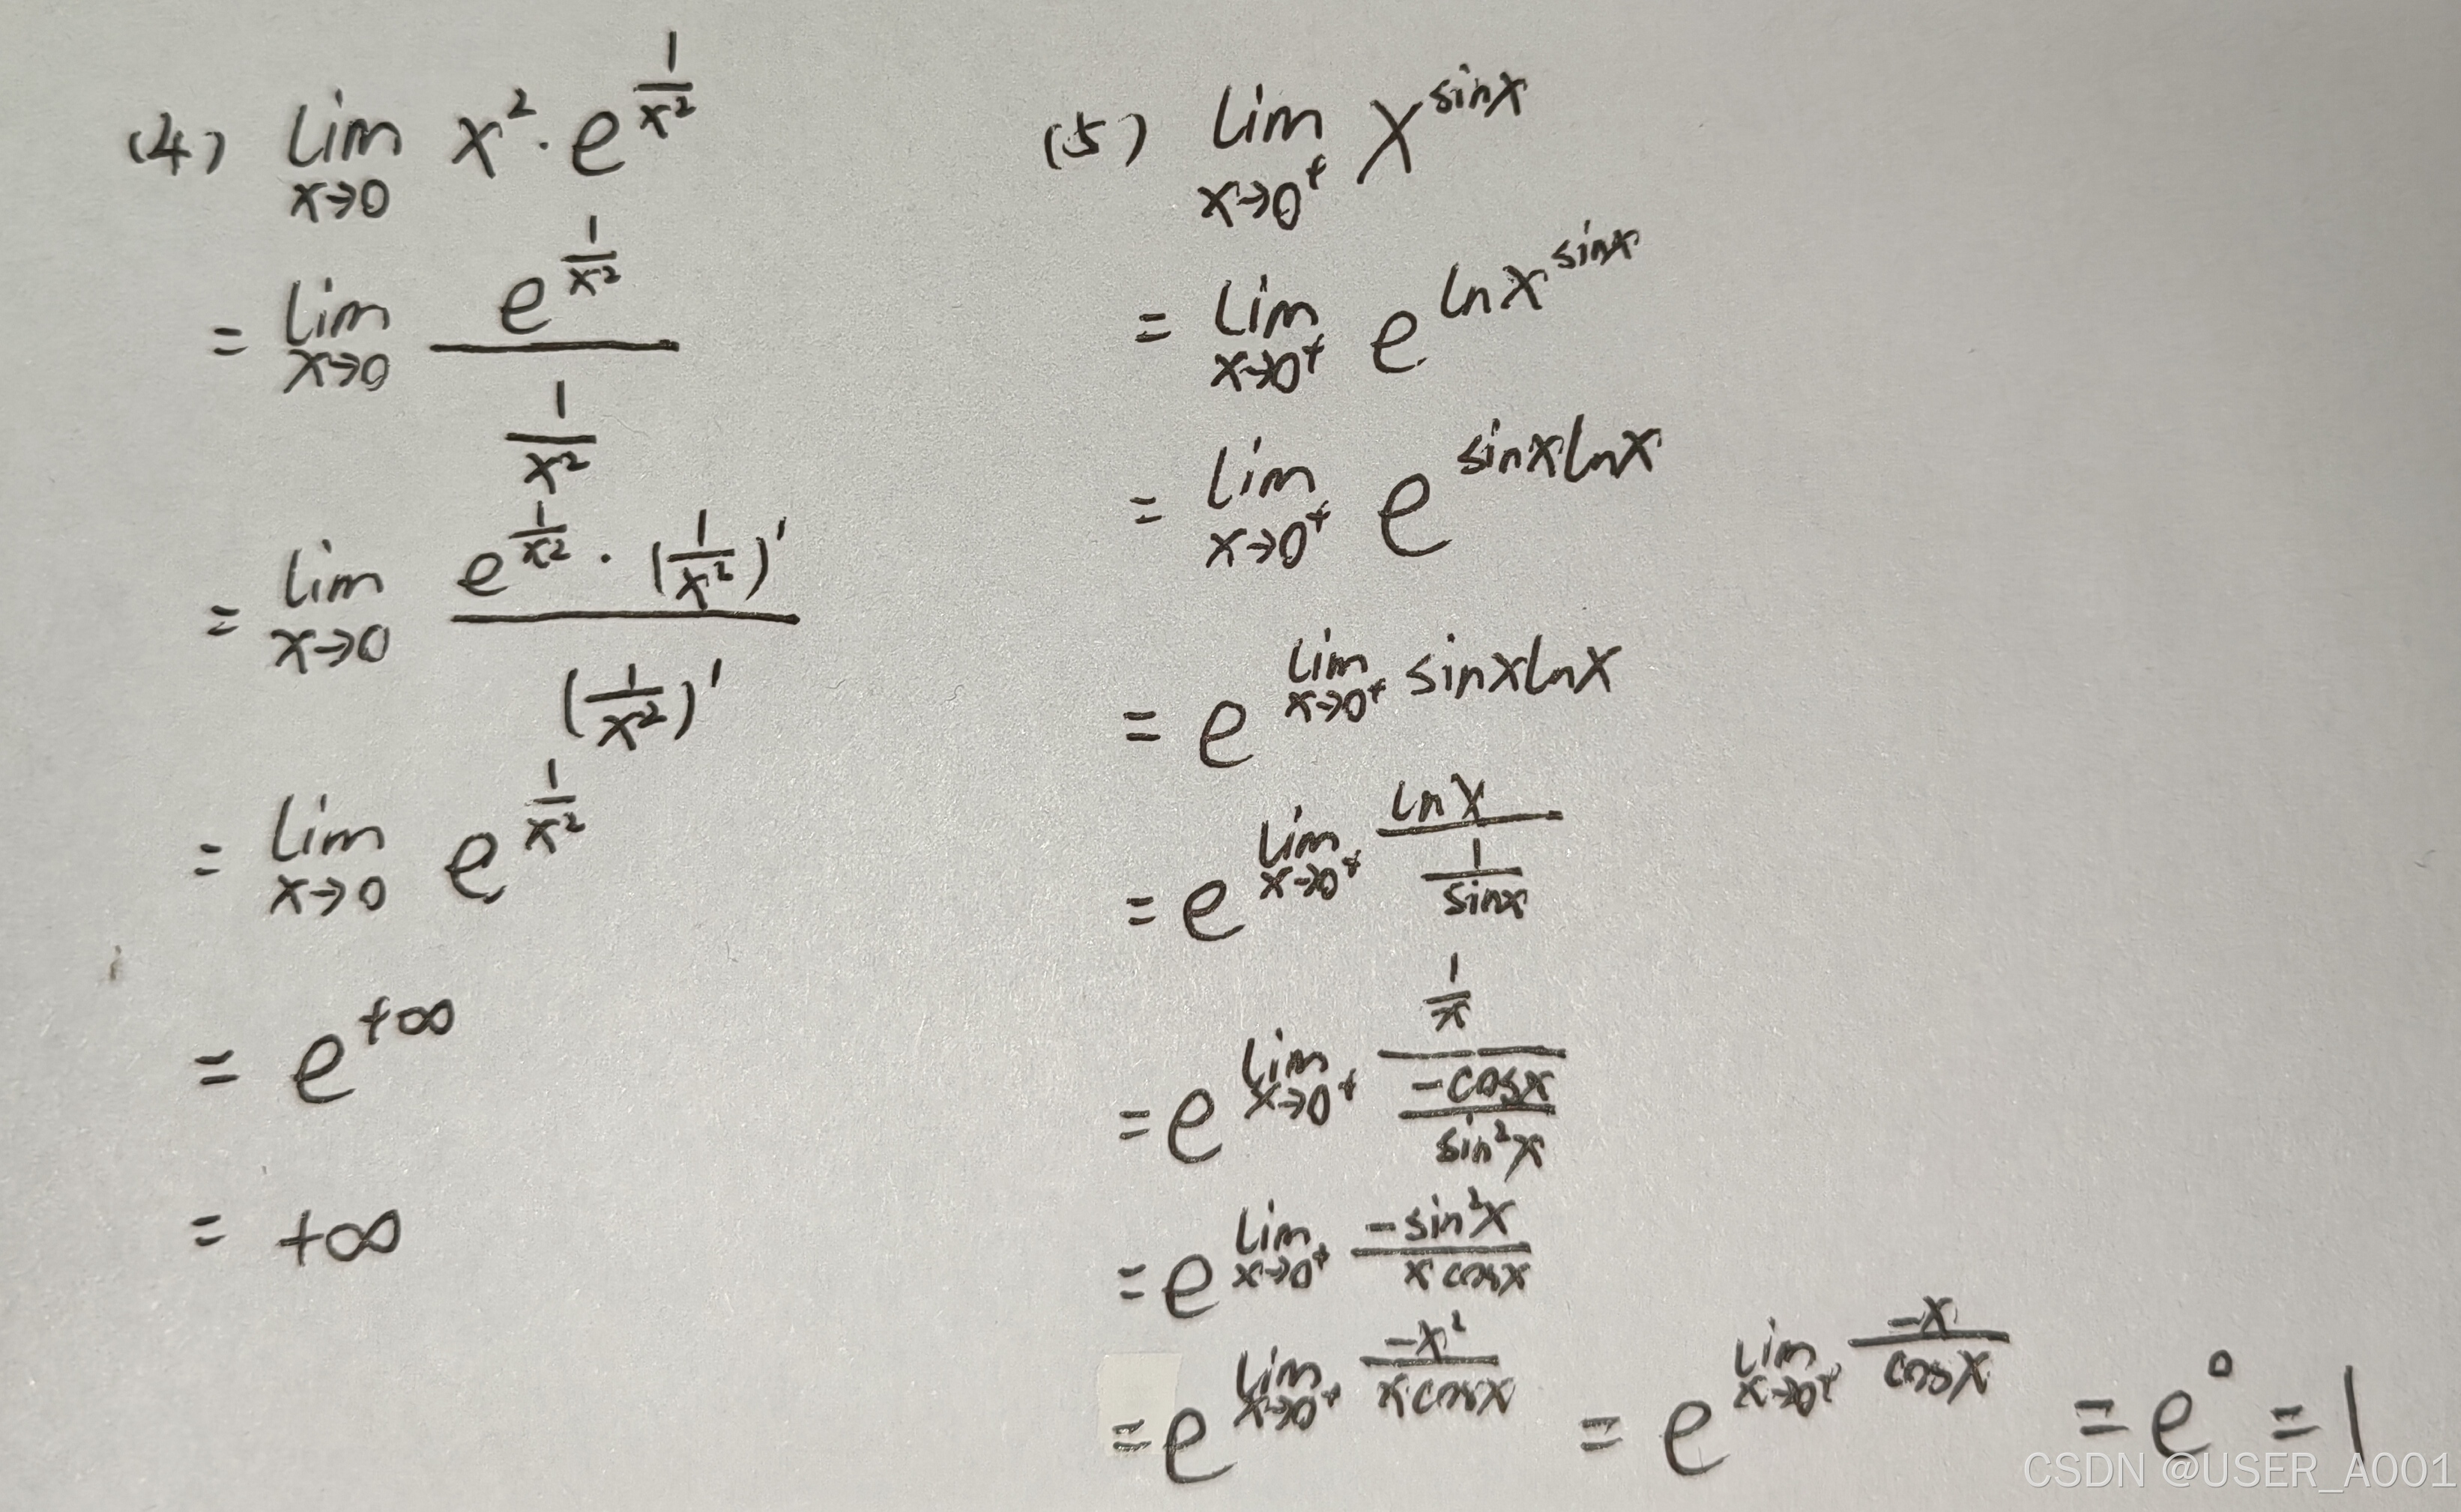 (4) lim_{x→0} x²·e^{1/x²}
= lim_{x→0} e^{1/x²} / (1/x²)
= lim_{x→0} e^{1/x²}·(1/x²)' / (1/x²)'
= lim_{x→0} e^{1/x²}
= e^{+∞}
= +∞
(5) lim_{x→0⁺} x^{sinx}
= lim_{x→0⁺} e^{lnx^{sinx}}
= lim_{x→0⁺} e^{sinxlnx}
= e^{lim_{x→0⁺} sinxlnx}
= e^{lim_{x→0⁺} lnx / (1/sinx)}
= e^{lim_{x→0⁺} (1/x) / (-cosx/sin²x)}
= e^{lim_{x→0⁺} -sin²x / xcosx}
= e^{lim_{x→0⁺} -x² / xcosx} = e^{lim_{x→0⁺} -x / cosx} = e⁰ = 1
CSDN @USER_A001